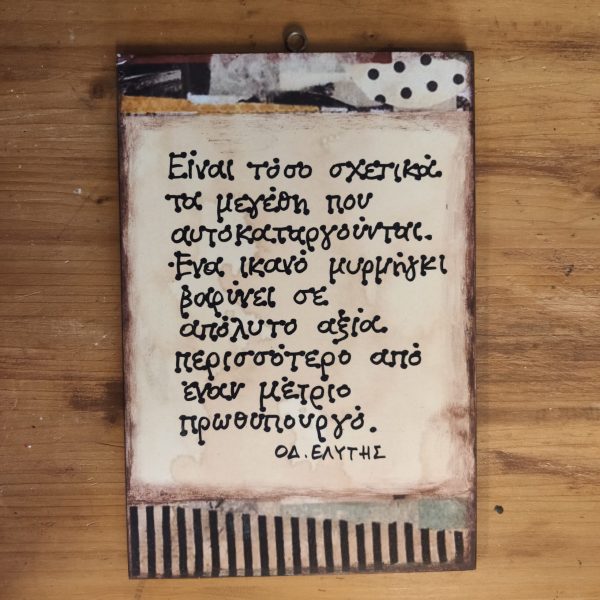 Είναι τόσο σχετικά
τα μεγέθη που
αυτοκαταργούνται.
Ένα ικανό μυρμήγκι
βαρύνει σε
απόλυτο αξία
περισσότερο από
έναν μέτριο
πρωθυπουργό.
ΟΔ. ΕΛΥΤΗΣ